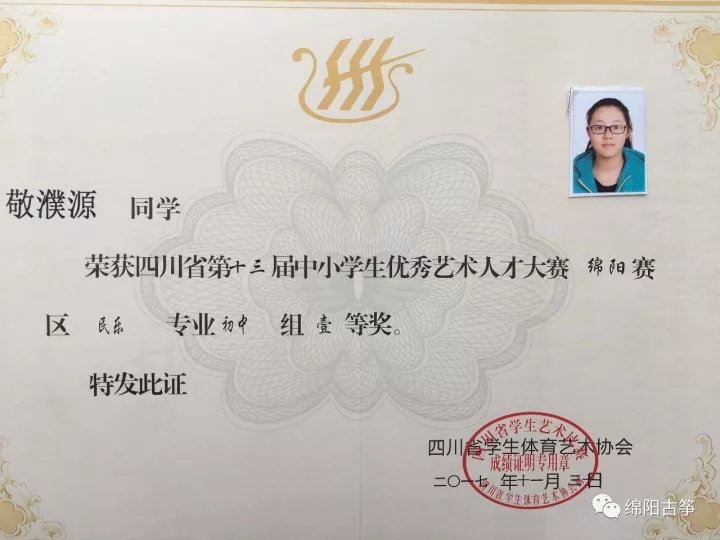 敬濮源 同学
荣获四川省第十三届中小学生优秀艺术人才大赛 绵阳 赛
区 民乐 专业 初中 组 壹 等奖。
特发此证
四川省学生体育艺术协会
成绩证明专用章
二〇一七 年十一月 三日
四川省学生体育艺术协会
绵阳古筝